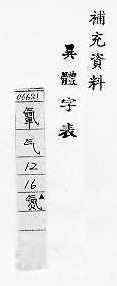 補充資料
異體字表
06621
气
12
16
氮